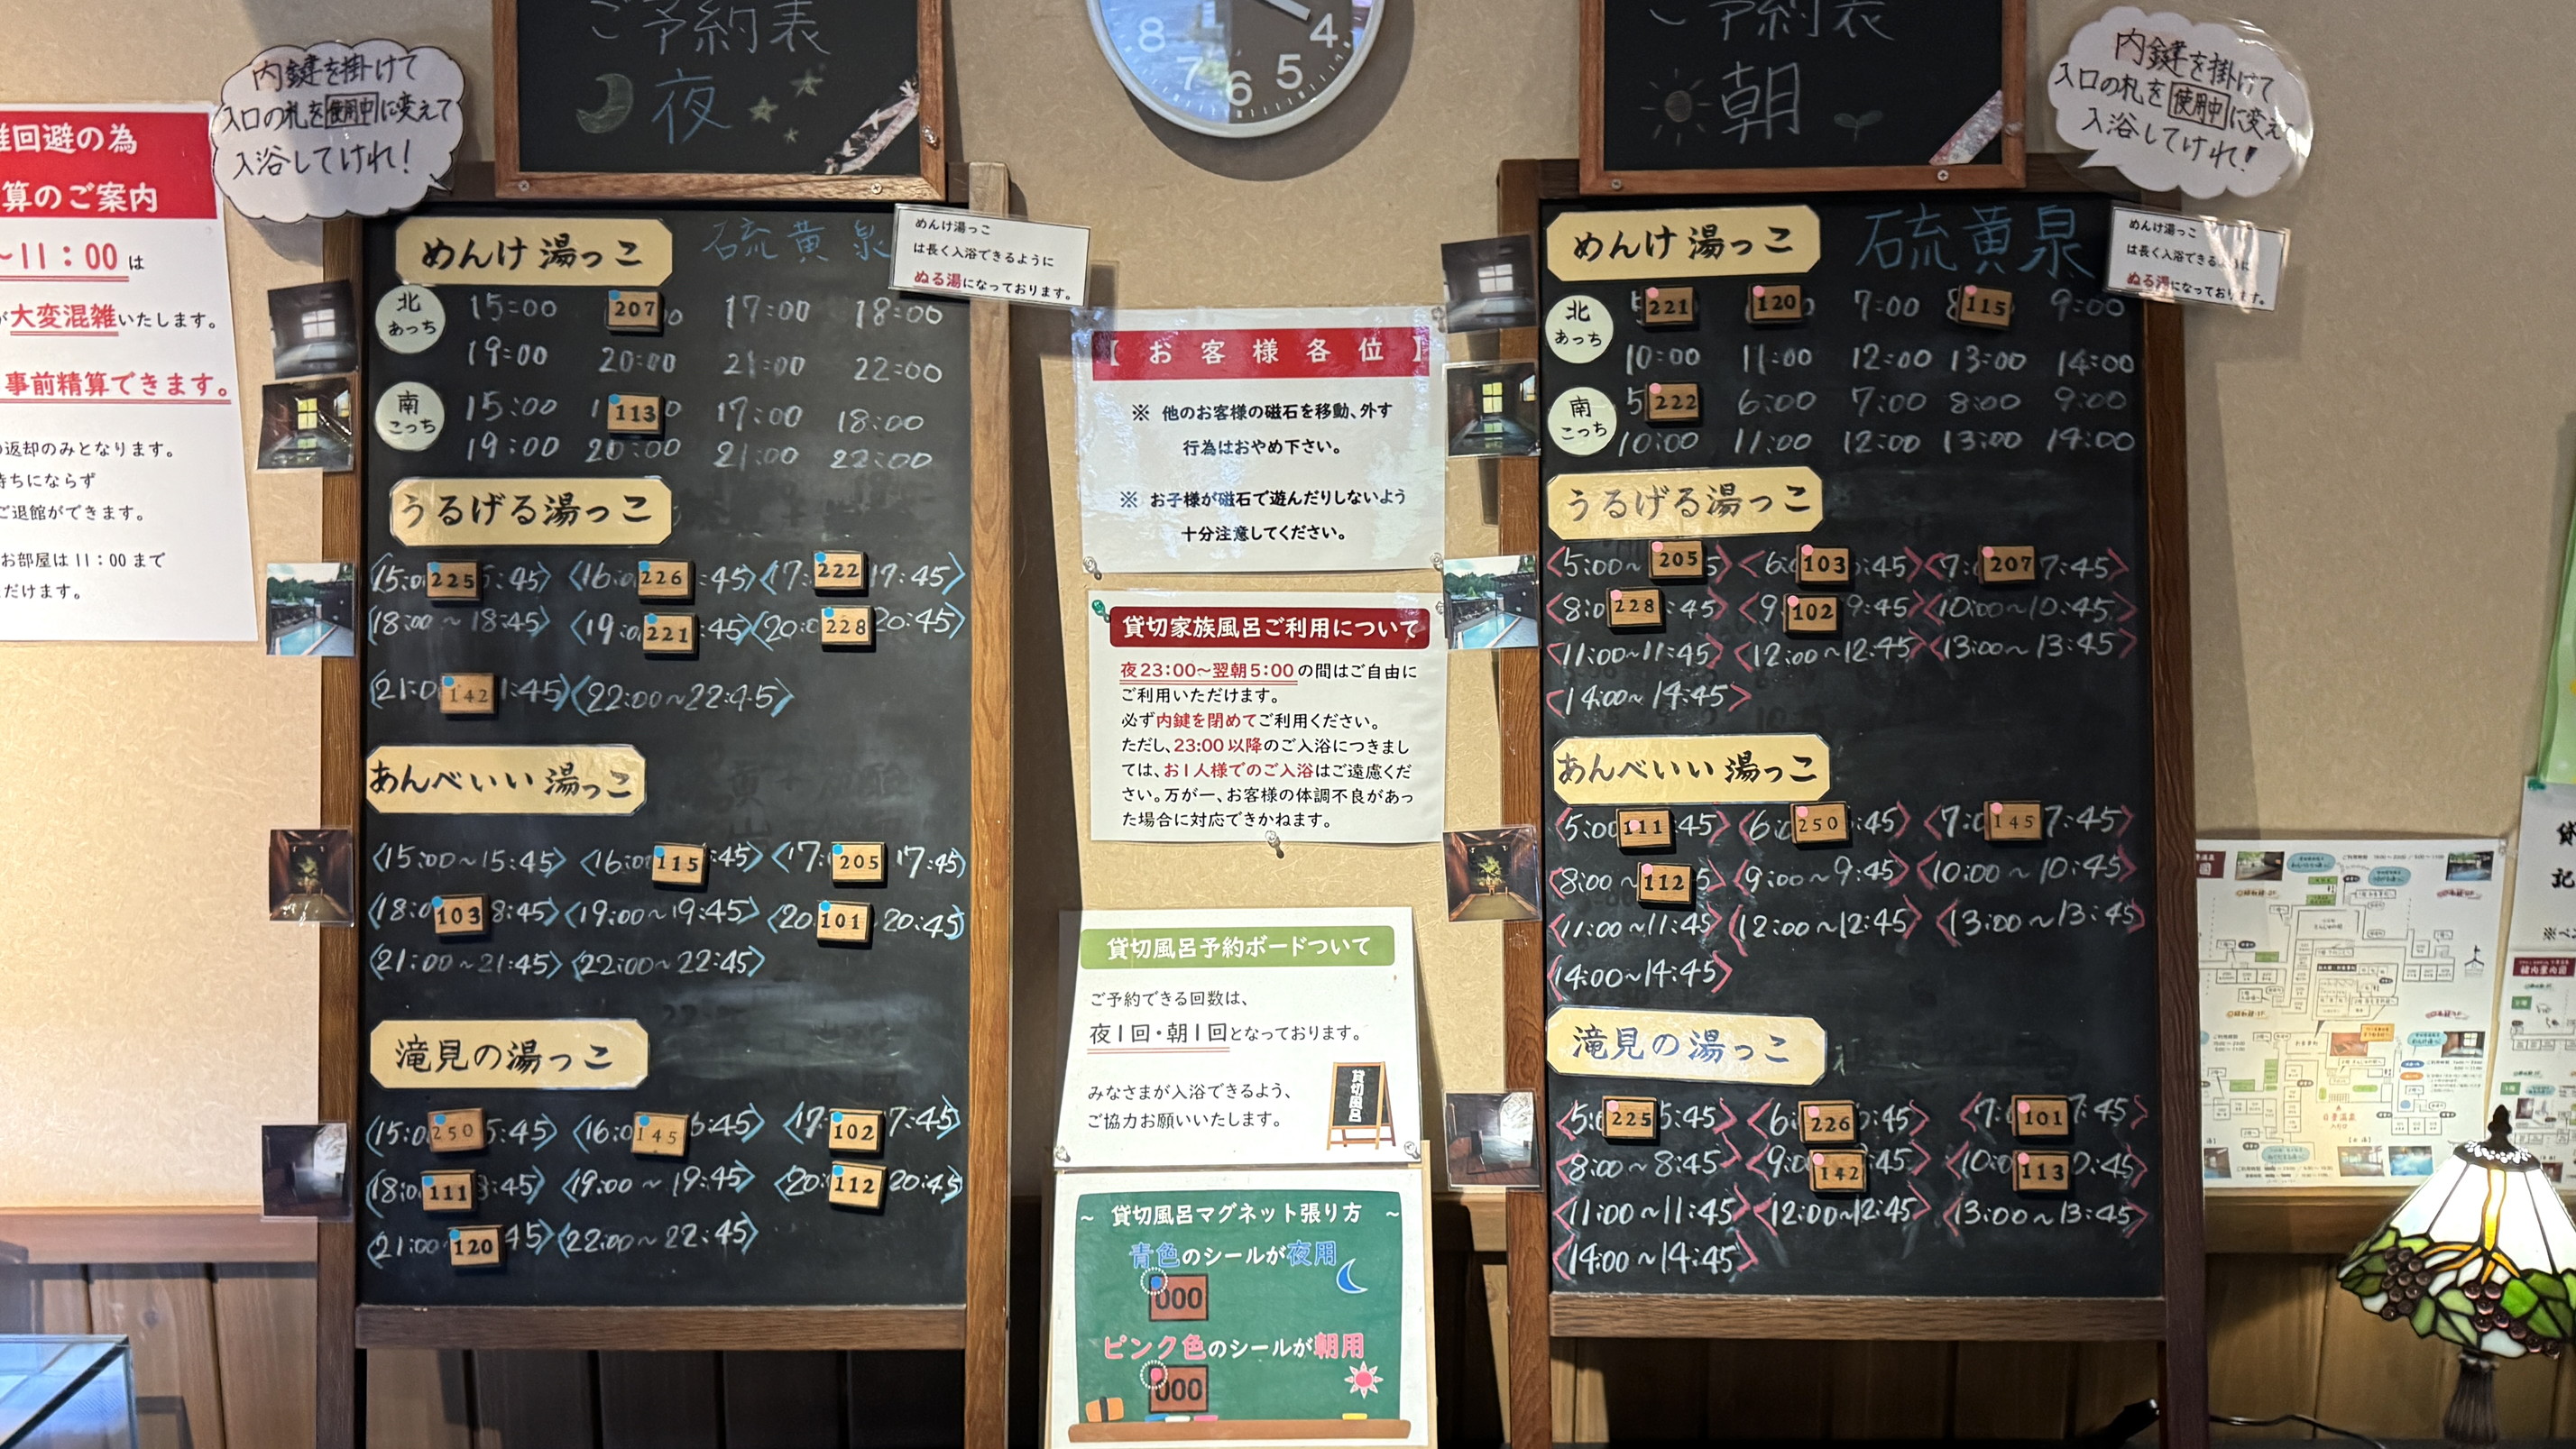 ご予約表
夜
内鍵を掛けて
入口の札を使用中に変えて
入浴してけれ!
回避の為
算のご案内
~11:00は
が大変混雑いたします。
事前精算できます。
の返却のみとなります。
待ちにならず
ご退館ができます。
お部屋は11:00まで
だけます。
めんけ湯っこ 硫黄泉
めんけ湯っこ
は長く入浴できるように
ぬる湯になっております。
北 あっち
15:00 207 17:00 18:00
19:00 20:00 21:00 22:00
南 こっち
15:00 113 17:00 18:00
19:00 20:00 21:00 22:00
うるげる湯っこ
〈15:0 225 5:45〉〈16:0 226 :45〉〈17: 222 17:45〉
〈18:00~18:45〉〈19:0 221 :45〉〈20:0 228 20:45〉
〈21:0 142 1:45〉〈22:00~22:45〉
あんべいい湯っこ
〈15:00~15:45〉〈16:0 115 :45〉〈17: 205 17:45〉
〈18:0 103 8:45〉〈19:00~19:45〉〈20 101 20:45〉
〈21:00~21:45〉〈22:00~22:45〉
滝見の湯っこ
〈15:0 250 5:45〉〈16:0 145 6:45〉〈17: 102 7:45〉
〈18:0 111 8:45〉〈19:00~19:45〉〈20: 112 20:45〉
〈21:00 120 45〉〈22:00~22:45〉
8 7 6 5 4
【お客様各位】
※ 他のお客様の磁石を移動、外す
行為はおやめ下さい。
※ お子様が磁石で遊んだりしないよう
十分注意してください。
貸切家族風呂ご利用について
夜23:00~翌朝5:00の間はご自由に
ご利用いただけます。
必ず内鍵を閉めてご利用ください。
ただし、23:00以降のご入浴につきまし
ては、お1人様でのご入浴はご遠慮くだ
さい。万が一、お客様の体調不良があっ
た場合に対応できかねます。
貸切風呂予約ボードついて
ご予約できる回数は、
夜1回・朝1回となっております。
みなさまが入浴できるよう、
ご協力お願いいたします。
貸切風呂
~ 貸切風呂マグネット張り方 ~
青色のシールが夜用
000
ピンク色のシールが朝用
000
ご予約表
朝
内鍵を掛けて
入口の札を使用中に変えて
入浴してけれ!
めんけ湯っこ 硫黄泉
めんけ湯っこ
は長く入浴できるように
ぬる湯になっております。
北 あっち
221 120 7:00 115 9:00
10:00 11:00 12:00 13:00 14:00
南 こっち
5 222 6:00 7:00 8:00 9:00
10:00 11:00 12:00 13:00 14:00
うるげる湯っこ
〈5:00~ 205 5〉〈6: 103 :45〉〈7: 207 7:45〉
〈8:0 228 :45〉〈9 102 9:45〉〈10:00~10:45〉
〈11:00~11:45〉〈12:00~12:45〉〈13:00~13:45〉
〈14:00~14:45〉
あんべいい湯っこ
〈5:00 111 :45〉〈6:0 250 :45〉〈7:0 145 7:45〉
〈8:00~ 112 5〉〈9:00~9:45〉〈10:00~10:45〉
〈11:00~11:45〉〈12:00~12:45〉〈13:00~13:45〉
〈14:00~14:45〉
滝見の湯っこ
〈5: 225 5:45〉〈6: 226 :45〉〈7: 101 7:45〉
〈8:00~8:45〉〈9:0 142 :45〉〈10:0 113 0:45〉
〈11:00~11:45〉〈12:00~12:45〉〈13:00~13:45〉
〈14:00~14:45〉
館内案内図